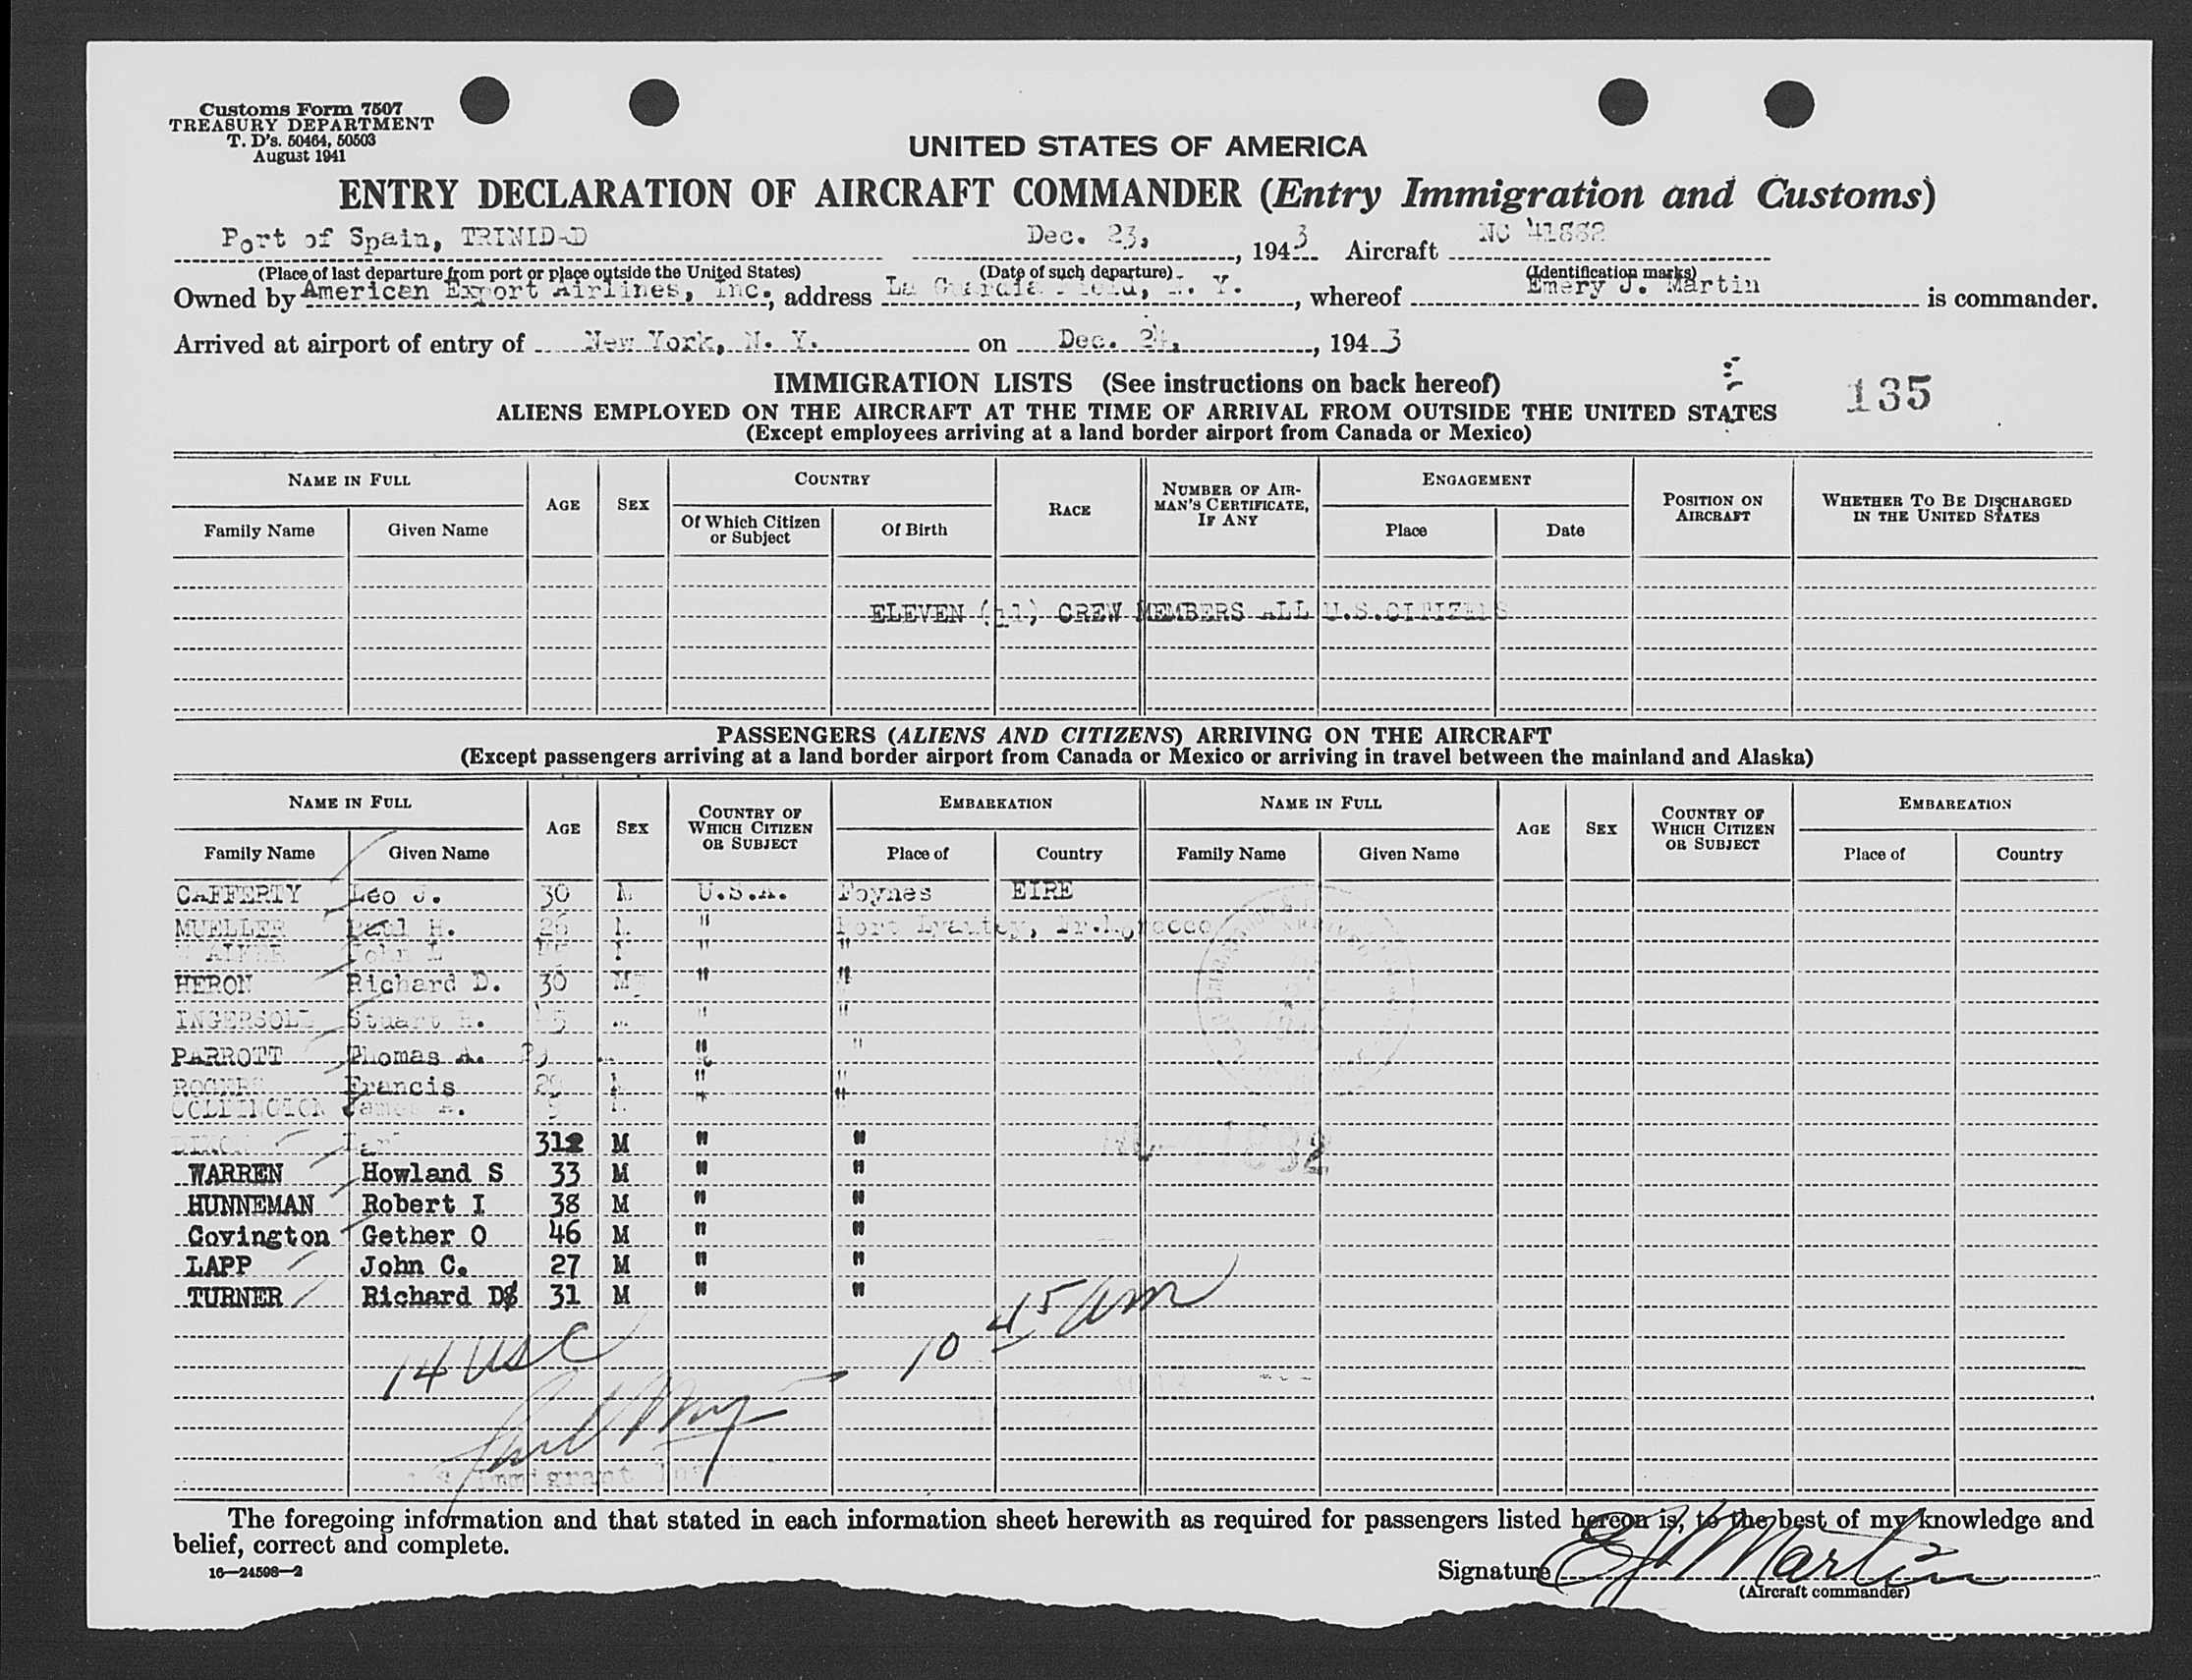 Customs Form 7507
TREASURY DEPARTMENT
T. D's. 50464, 50503
August 1941
UNITED STATES OF AMERICA
ENTRY DECLARATION OF AIRCRAFT COMMANDER (Entry Immigration and Customs)
Port of Spain, TRINIDAD Dec. 23, 1943 Aircraft NC 41882
(Place of last departure from port or place outside the United States) (Date of such departure) (Identification marks)
Owned by American Export Airlines, Inc., address La Guardia Field, N. Y., whereof Emery J. Martin is commander.
Arrived at airport of entry of New York, N. Y. on Dec. 24, 1943
IMMIGRATION LISTS (See instructions on back hereof)
135
ALIENS EMPLOYED ON THE AIRCRAFT AT THE TIME OF ARRIVAL FROM OUTSIDE THE UNITED STATES
(Except employees arriving at a land border airport from Canada or Mexico)
NAME IN FULL AGE SEX COUNTRY RACE NUMBER OF AIRMAN'S CERTIFICATE, IF ANY ENGAGEMENT POSITION ON AIRCRAFT WHETHER TO BE DISCHARGED IN THE UNITED STATES
Family Name Given Name Of Which Citizen or Subject Of Birth Place Date
ELEVEN (11) CREW MEMBERS ALL U.S.CITIZENS
PASSENGERS (ALIENS AND CITIZENS) ARRIVING ON THE AIRCRAFT
(Except passengers arriving at a land border airport from Canada or Mexico or arriving in travel between the mainland and Alaska)
NAME IN FULL AGE SEX COUNTRY OF WHICH CITIZEN OR SUBJECT EMBARKATION NAME IN FULL AGE SEX COUNTRY OF WHICH CITIZEN OR SUBJECT EMBARKATION
Family Name Given Name Place of Country Family Name Given Name Place of Country
CAFFERTY Leo J. 30 M U.S.A. Foynes EIRE
MUELLER Paul H. 26 M " Port Lyautey, Fr.Morocco
WALKER John " "
HERON Richard D. 30 M " "
INGERSOLL Stuart " "
PARROTT Thomas A. " "
ROGERS Francis " "
James " "
M " "
WARREN Howland S 33 M " "
HUNNEMAN Robert I 38 M " "
Covington Gether O 46 M " "
LAPP John C. 27 M " "
TURNER Richard D 31 M " "
10 45 am
14 USC
Immigrant
The foregoing information and that stated in each information sheet herewith as required for passengers listed hereon is, to the best of my knowledge and
belief, correct and complete.
16—24598—2
Signature E J Martin
(Aircraft commander)